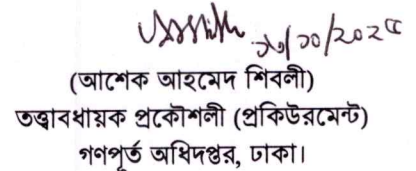 ২০/১০/২০২৫
(আশেক আহমেদ শিবলী)
তত্ত্বাবধায়ক প্রকৌশলী (প্রকিউরমেন্ট)
গণপূর্ত অধিদপ্তর, ঢাকা।